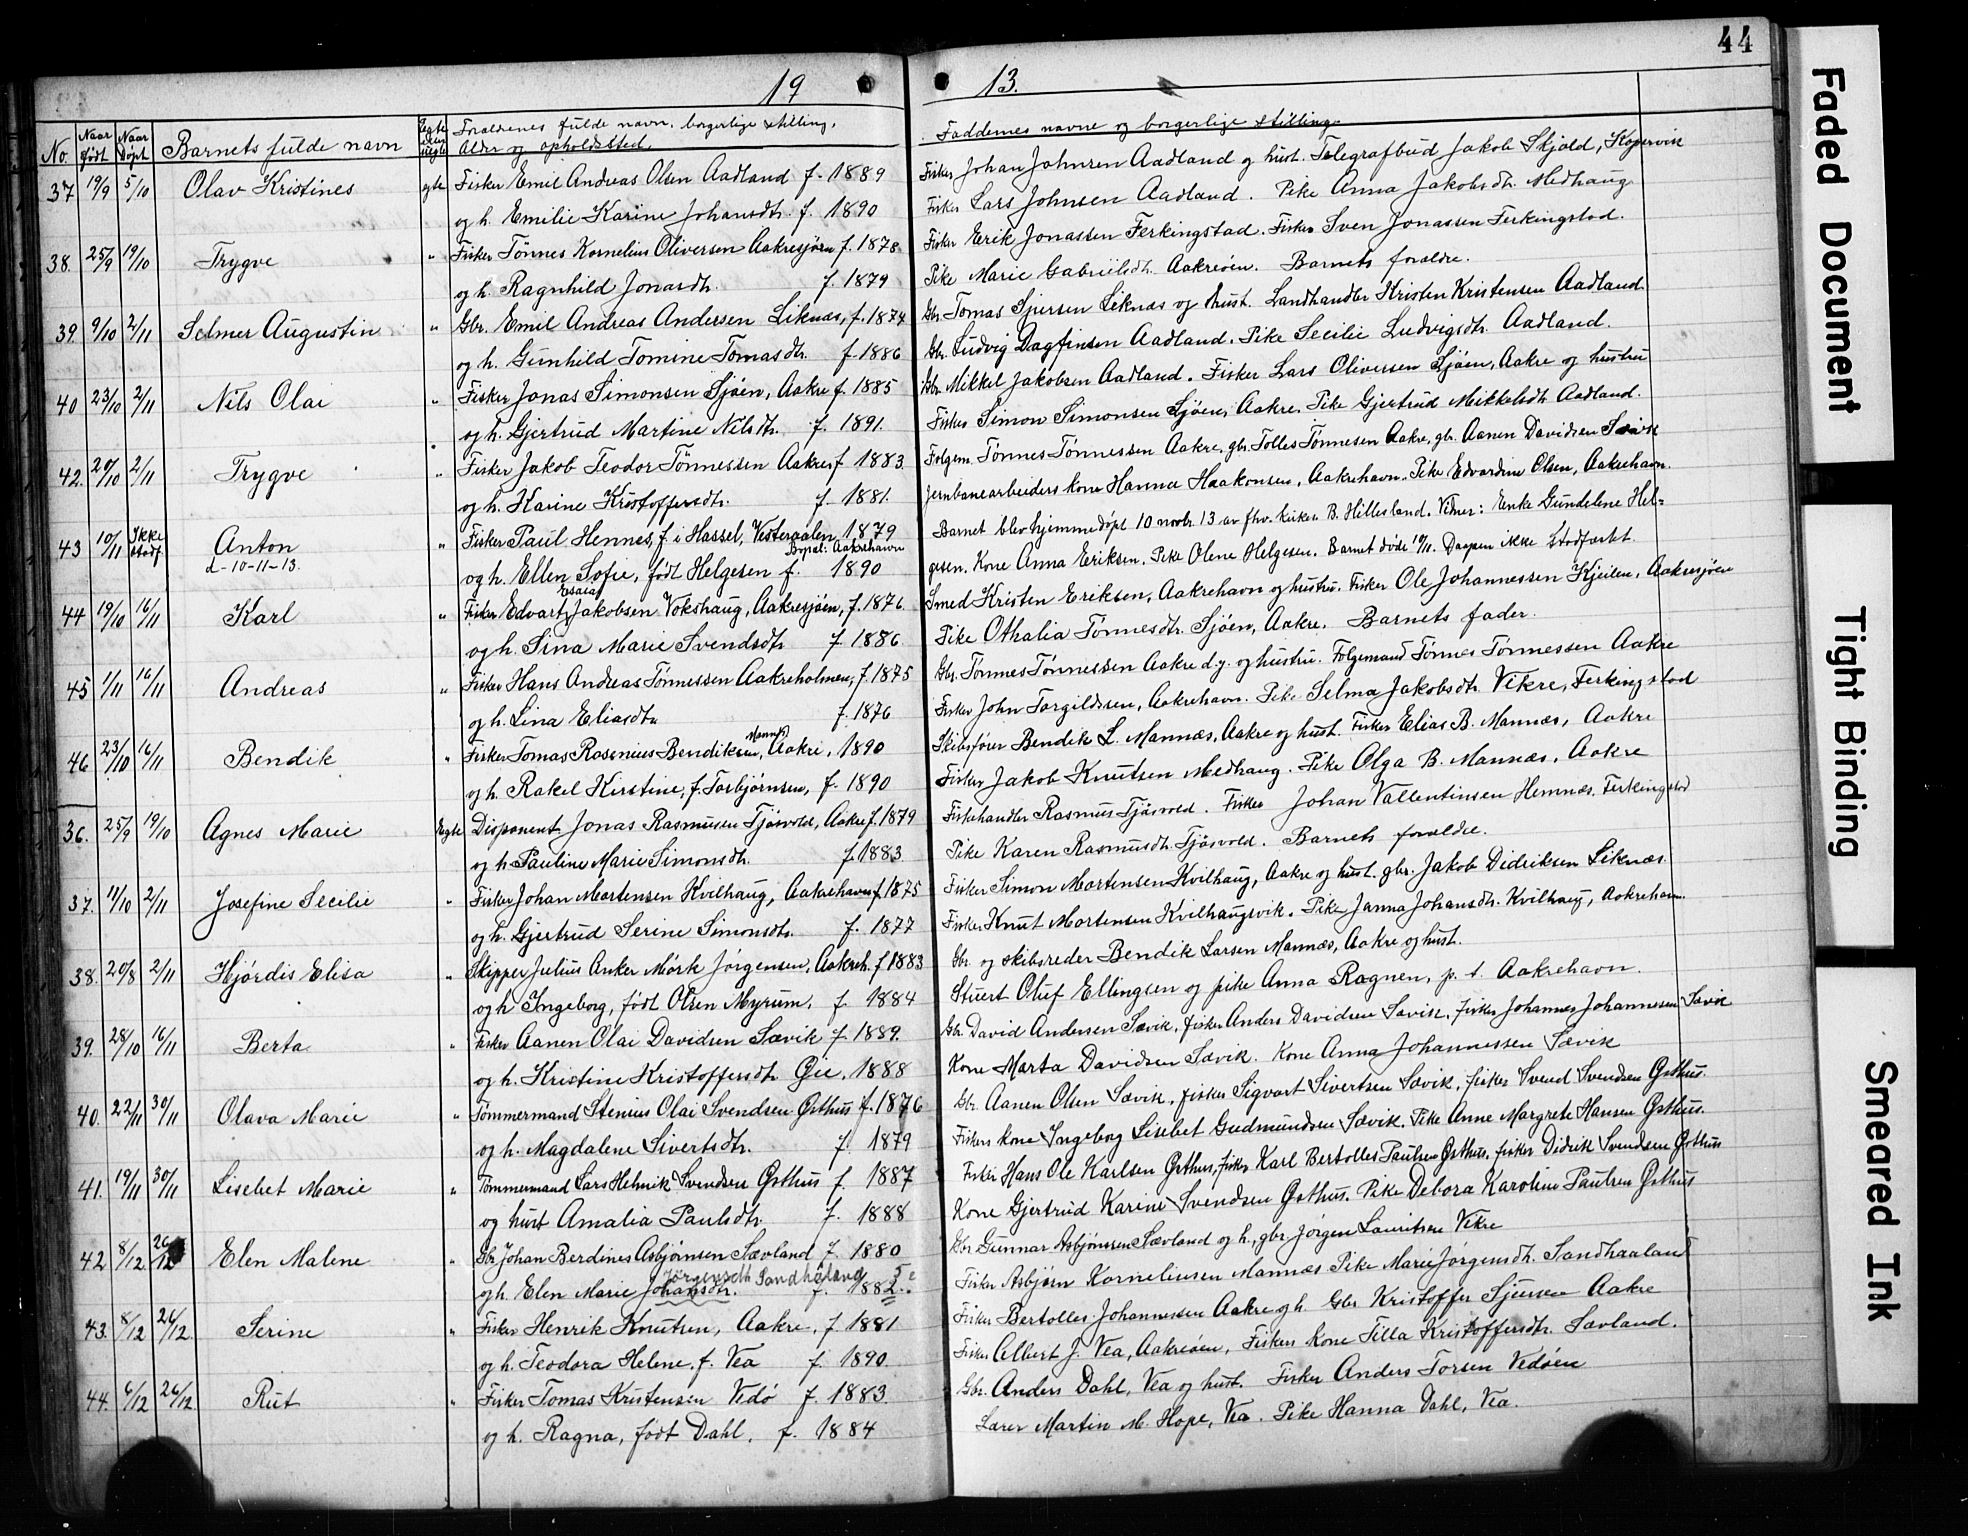 44
19 13.
No. Naar født Naar Døpt Barnets fulde navn Egte eller uegte Forældrenes fulde navn, borgerlige stilling, alder og opholdssted. Faddernes navne og borgerlige stilling
37 19/9 5/10 Olav Kristines egte Fisker Emil Andreas Olsen Aadland f. 1889 Fisker Johan Johnsen Aadland og hust. Telegrafbud Jakob Skjold, Kopervik
og h. Emilie Karine Johansdtr. f. 1890 Fisker Lars Johnsen Aadland. Pike Anna Jakobsdtr. Medhaug
38. 25/9 19/10 Trygve " Fisker Tønnes Kornelius Oliversen Aakresjøen f. 1878 Fisker Erik Jonassen Ferkingstad. Fisker Sven Jonassen Ferkingstad.
og h. Ragnhild Jonasdtr. f. 1879 Pike Marie Gabrielsdtr. Aakreøen. Barnets forældre.
39. 9/10 2/11 Selmer Augustin " Gbr. Emil Andreas Andersen Liknæs, f. 1874 Gbr. Tomas Sjursen Liknæs og hust. Landhandler Kristen Kristensen Aadland
og h. Gunhild Tomine Tomasdtr. f. 1886 Gbr. Ludvig Dagfinsen Aadland. Pike Secilie Ludvigsdtr. Aadland.
40 23/10 2/11 Nils Olai " Fisker Jonas Simonsen Sjøen, Aakre f. 1885 Gbr. Mikkel Jakobsen Aadland. Fisker Lars Oliversen Sjøen, Aakre og hustru
og h. Gjertrud Martine Nilsdtr. f. 1891. Fisker Simon Simonsen Sjøen, Aakre. Pike Gjertrud Mikkelsdtr. Aadland.
42. 20/10 2/11 Trygve " Fisker Jakob Teodor Tønnessen Aakre f 1883 Folgem. Tønnes Tønnessen Aakre, gbr. Tolles Tønnesen Aakre, gbr. Aanen Davidsen Sævik
og h. Karine Kristoffersdtr. f. 1881. Jernbanearbeiders kone Hanna Haakonsen, Aakrehavn. Pike Edvardine Olsen, Aakrehavn.
43 10/11 Ikke stadf. Anton " Fisker Paul Hennes, f. i Hassel, Vesteraalen 1879 Barnet blev hjemmedøpt 10 novbr. 13 av fhv. kirkes. B. Hillesland. Vidner: Enke Gundelene Hel-
d-10-11-13. Bopæl: Aakrehavn
og h. Ellen Sofie, født Helgesen f. 1890 gesen, Kone Anna Eriksen. Pike Olene Helgesen. Barnet døde 10/11. Daapen ikke stadfæstet
44 19/10 16/11 Karl " Fisker Edvart Esaias Jakobsen Vokshaug, Aakresjøen, f. 1876 Smed Kristen Eriksen, Aakrehavn og hustru. Fisker Ole Johannessen Kjeilen, Aakresjøen
og h. Sina Marie Svendsdtr f 1886 Pike Othalia Tønnesdtr. Sjøen, Aakre. Barnets fader.
45 1/11 16/11 Andreas " Fisker Hans Andreas Tønnessen Aakreholmen, f. 1875 Gbr. Tønnes Tønnessen Aakre d.y. og hustru. Folgemand Tønnes Tønnessen Aakre
og h. Lina Eliasdtr f. 1876 Fisker John Torgildsen, Aakrehavn. Pike Selma Jakobsdtr. Vikre, Ferkingstad
46 23/10 16/11 Bendik " Fisker Tomas Rasmus Bendiksen Mannes, Aakre, 1890 Skibsfører Bendik L. Mannæs, Aakre og hust. Fisker Elias B. Mannæs, Aakre
og h. Rakel Kirstine, f. Torbjørnsen, f. 1890 Fisker Jakob Knutsen Medhaug. Pike Olga B. Mannæs, Aakre
36. 25/9 19/10 Agnes Marie Egte Disponent Jonas Rasmusen Tjøsvold, Aakre f. 1879 Fiskehandler Rasmus Tjøsvold. Fisker Johan Vallentinsen Hemnæs, Ferkingstad
og h. Pauline Marie Simonsdtr. f. 1883 Pike Karen Rasmusdtr. Tjøsvold. Barnets forældre.
37. 11/10 2/11 Josefine Secilie " Fisker Johan Mortensen Kvilhaug, Aakrehavn f. 1875 Fisker Simon Mortensen Kvilhaug, Aakre og hust. gbr. Jakob Didriksen Liknæs.
og h. Gjertrud Serine Simonsdtr. f. 1877 Fisker Knut Mortensen Kvilhaugsvik. Pike Janna Johansdtr. Kvilhaug, Aakrehavn.
38. 20/8 2/11 Hjørdis Elisa " Skipper Julius Anker Mørk Jørgensen, Aakreh. f 1883 Gbr. og skibsreder Bendik Larsen Mannæs, Aakre og hust.
og h Ingeborg, født Olsen Myrum, f. 1884 Stuert Oluf Ellingsen og pike Anna Ragnen, p. t. Aakrehavn.
39. 28/10 16/11 Berta " Fisker Aanen Olai Davidsen Sævik f 1889. Gbr. David Andersen Sævik, fisker Anders Davidsen Sævik, fisker Johannes Johannesen Sævik
og h. Kristine Kristoffersdtr. Gie, 1888 Kone Marta Davidsen Sævik. Kone Anna Johannessen Sævik
40. 22/11 30/11 Olava Marie " Tømmermand Stenius Olai Svendsen Østhus f. 1876 Gbr. Aanen Olsen Sævik, fisker Sigvart Sivertsen Sævik, fisker Svend Svendsen Østhus.
og h. Magdalene Sivertsdtr. f. 1879 Fiskers kone Ingeborg Lisebet Gudmundsen Sævik. Pike Anne Margrete Hansen Østhus.
41. 19/11 30/11 Lisebet Marie " Tømmermand Lars Helmik Svendsen Østhus f. 1887 Fisker Hans Ole Karlsen Østhus, fisker Karl Bertolles Paulsen Østhus, fisker Didrik Svendsen Østhus
og hust Amalia Paulsdtr. f. 1888 Kone Gjertrud Karine Svendsen Østhus. Pike Debora Karoline Paulsen Østhus
42 8/12 26/12 Elen Malene " Gbr. Johan Berdines Asbjørnsen Sævland f. 1880 Gbr. Gunnar Asbjørnsen Sævland og h., gbr. Jørgen Lauritsen Vikre
Jørgensdtr Sandhåland
og h. Elen Marie Johansdtr. f. 1882. Fisker Asbjørn Korneliusen Mannæs Pike Marie Jørgensdtr. Sandhaaland
43. 8/12 26/12 Serine " Fisker Henrik Knutsen, Aakre, f 1881 Fisker Bertolles Johannessen Aakre og h. Gbr Kristoffer Sjursen Aakre
og h. Teodora Helene, f. Vea f. 1890. Fisker Albert J. Vea, Aakreøen, Fiskers kone Tilla Kristoffersdtr. Sævland.
44. 6/12 26/12 Rut " Fisker Tomas Kristensen Vedø f. 1883. Gbr. Anders Dahl, Vea og hust. Fisker Anders Torsen Vedøen
og h. Ragna, født Dahl, f. 1884 Lærer Martin M. Hope, Vea. Pike Hanna Dahl, Vea.
Faded Document
Tight Binding
Smeared Ink